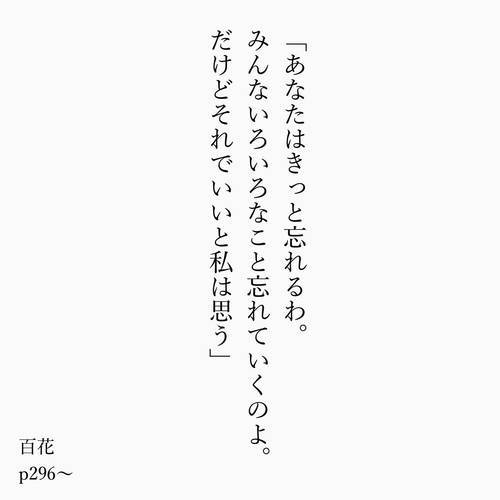 「あなたはきっと忘れるわ。
みんないろいろなこと忘れていくのよ。
だけどそれでいいと私は思う」
百花
p296〜